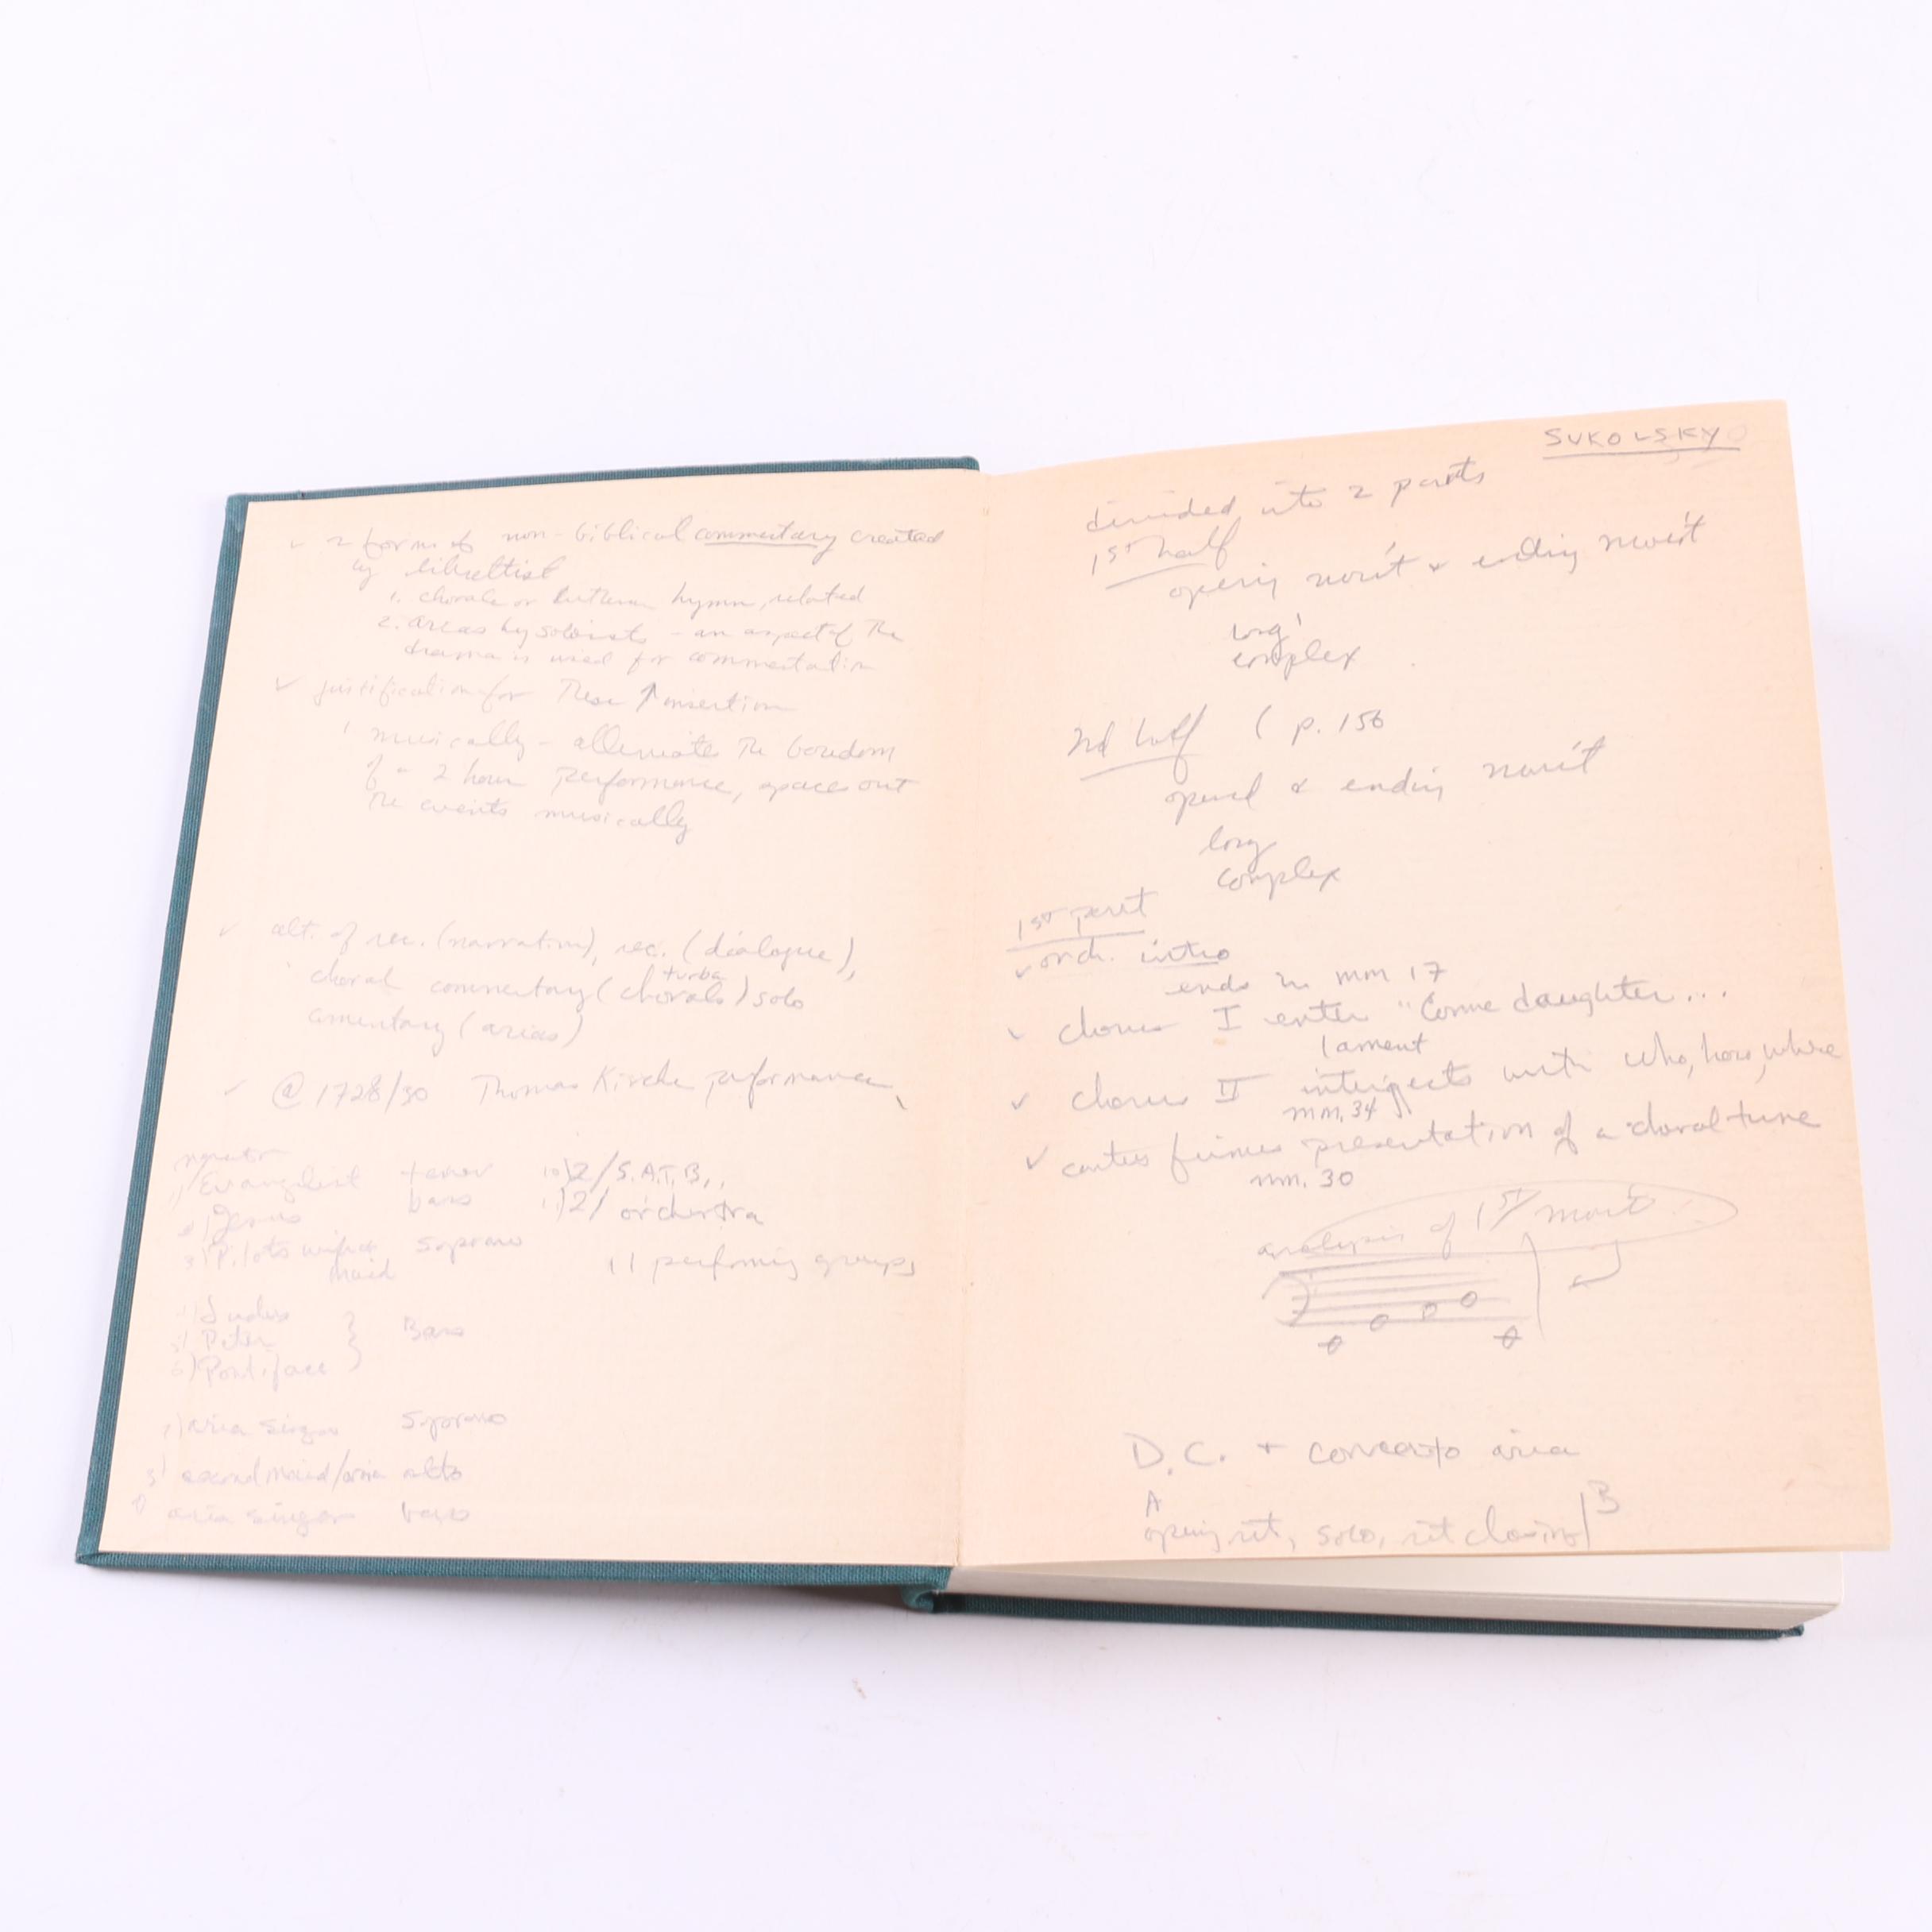 ✓ 2 forms of non-biblical commentary created
by librettist
1. chorale or Lutheran hymn, related
2. areas by soloists - an aspect of the
drama is used for commentation
✓ justification for these ↑ insertion
1 musically - alleviate the boredom
of a 2 hour performance, spaces out
the events musically
✓ alt. of rec. (narration), rec. (dialogue),
turba
choral commentary (chorals) solo
comentary (arias)
✓ @ 1728/30 Thomas Kirche performance
narrator
1) Evangelist tenor 10) 2/ S.A.T.B.,
2) Jesus bass 11) 2/ orchestra
3) Pilots wife soprano
maid 11 performing groups
4) Judas
5) Peter } Bass
6) Pontiface
7) aria singer soprano
second maid/aria alto
aria singer bass
SUKOLSKY
divided into 2 parts
1st half
opening mov't & ending mov't
long
complex
2nd half ( p. 156
opened & ending mov't
long
complex
1st part
✓ orch. intro
ends in mm 17
✓ chorus I enter "Come daughter...
lament
✓ chorus II interjects with who, how, where
mm. 34
✓ cantus firmus presentation of a choral tune
mm. 30
analysis of 1st movt
D.C. + concerto aria
A B
opening rit, solo, rit closing